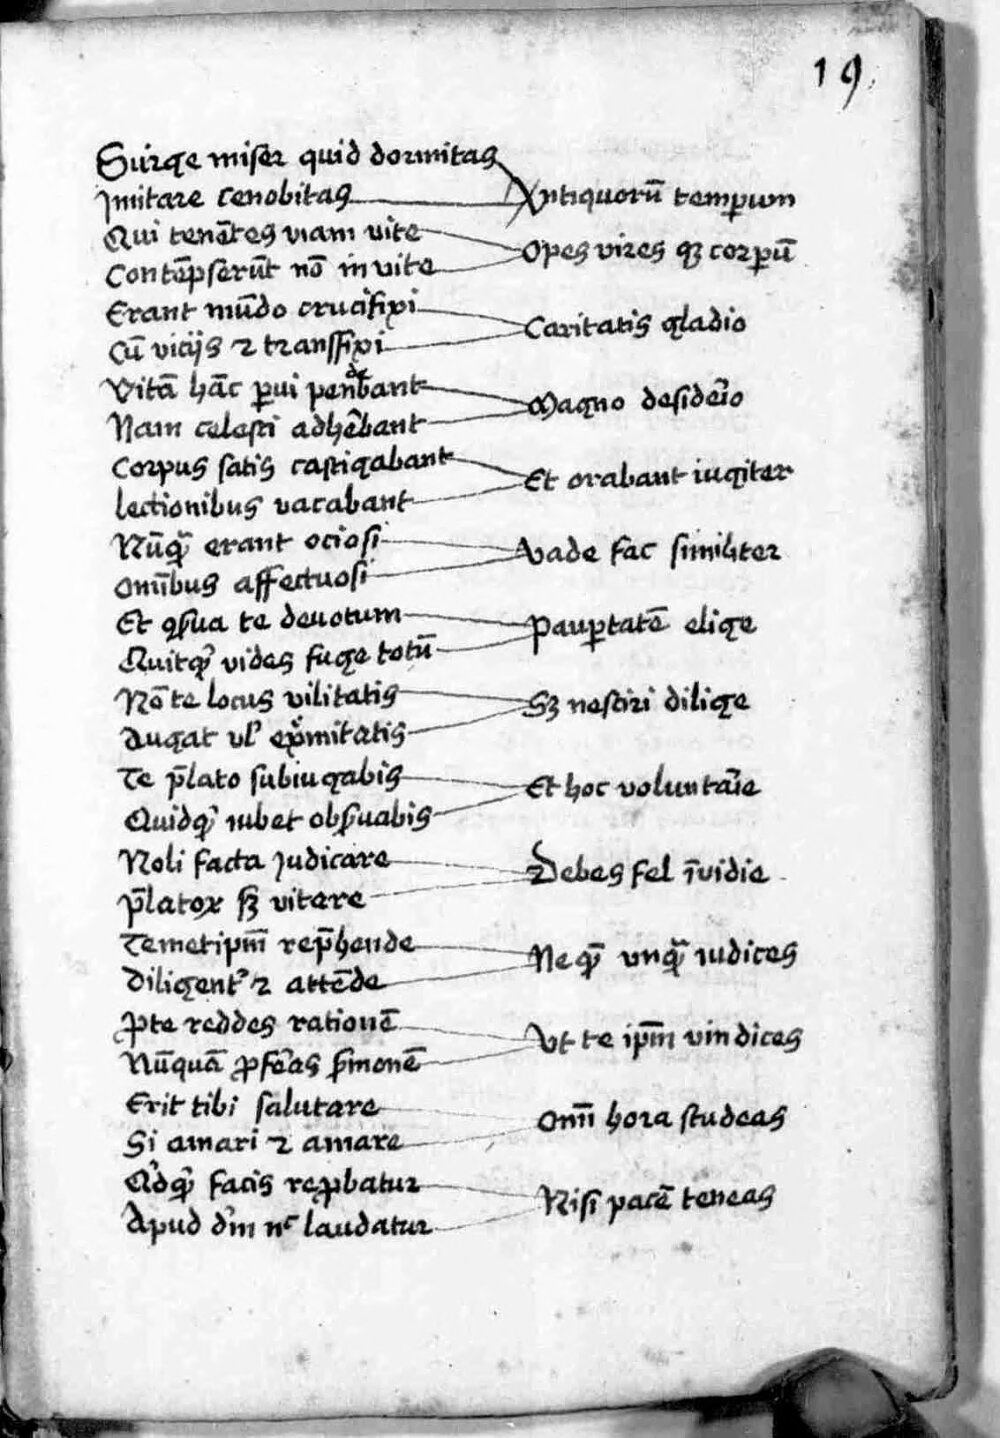 19
Surge miser quid dormitas
Imitare cenobitas
Antiquorū temp̲um
Qui tenētes viam vite
Contēpserūt nō in vite
Opes vires qꝫ corpꝑū
Erant mūdo crucifixi
Cū vicijs ⁊ transfixi
Caritatis gladio
Vitā hāc ꝑui pendēbant
Nam celesti adhēbant
Magno desidēio
Corpus satis castigabant
lectionibus vacabant
Et orabant iugiter
Nūqᷓ erant ociosi
Omībus affectuosi
Vade fac similiter
Et ꝯẜua te deuotum
Quitqͥ vides fuge totū
Pauꝑtatē elige
Nō te locus vilitatis
Augat vl̓ exͥmitatis
Sꝫ nesciri dilige
Te p̄lato subiugabis
Quidqͥ iubet obẜuabis
Et hoc voluntāie
Noli facta Judicare
p̄latoꝝ sꝫ vitare
Debes fel īvidie
Temetip̄m rep̄hende
Diligent᷑ ⁊ attēde
Ne qͥ vnqᷓ iudices
Ꝑ te reddes rationē
Nūquā ꝓfēas ẜmonē
Vt te ip̄m vindices
Erit tibi salutare
Si amari ⁊ amare
Omī hora studeas
Qͥdqͥ facis reꝓbatur
Apud dm̄ nᶜ laudatur
Nisi pacē teneas